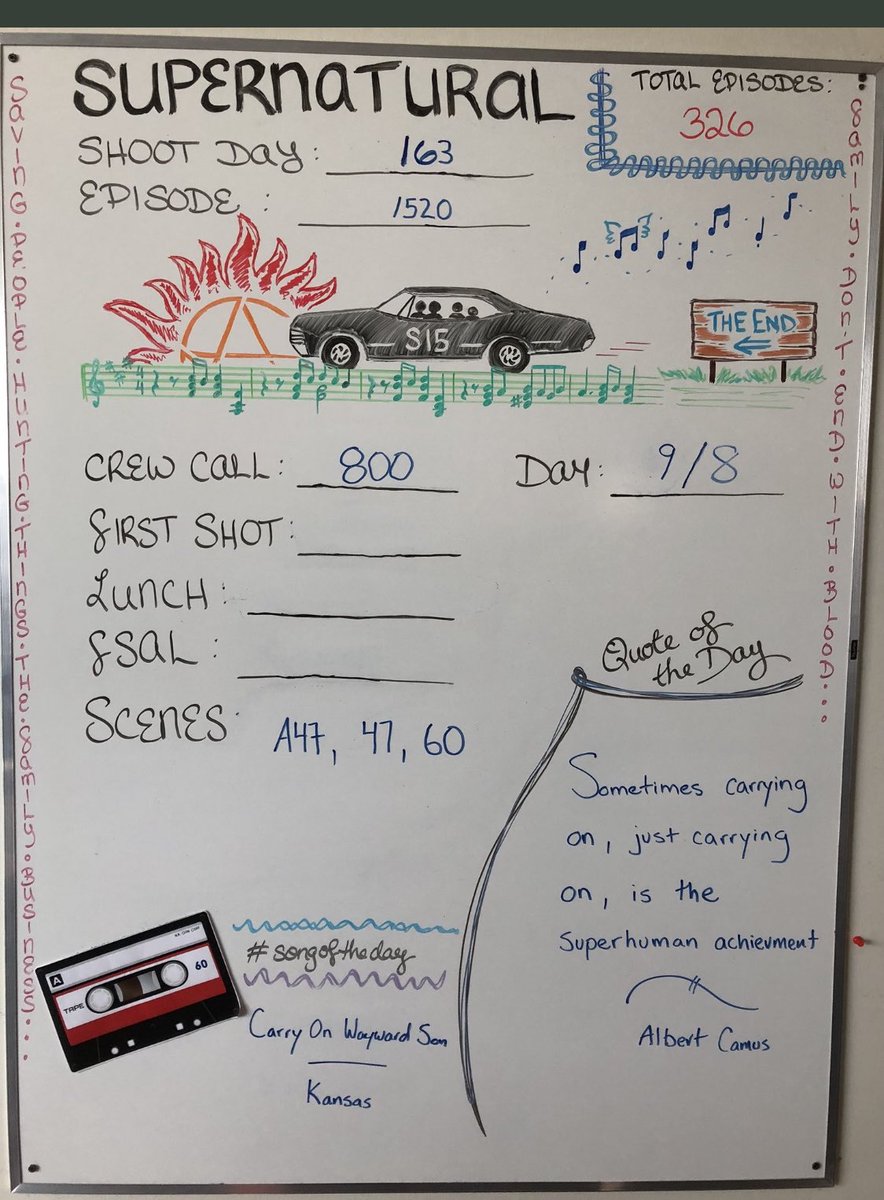 SUPERNATURAL
TOTAL EPISODES:
326
SHOOT DAY: 163
EPISODE: 1520
SAVING.PEOPLE.HUNTING.THINGS.THE.FAMILY.BUSINESS...
FAMILY.DON'T.END.WITH.BLOOD...
S15
THE END
CREW CALL: 800
DAY: 9/8
FIRST SHOT:
LUNCH:
FSAL:
SCENES: A47, 47, 60
Quote of
the Day
Sometimes carrying
on, just carrying
on, is the
Superhuman achievment
Albert Camus
#songoftheday
Carry On Wayward Son
Kansas
A
60
TAPE